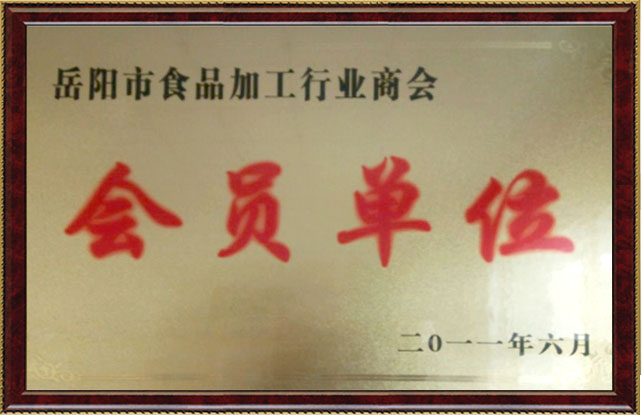 岳阳市食品加工行业商会
会员单位
二0一一年六月